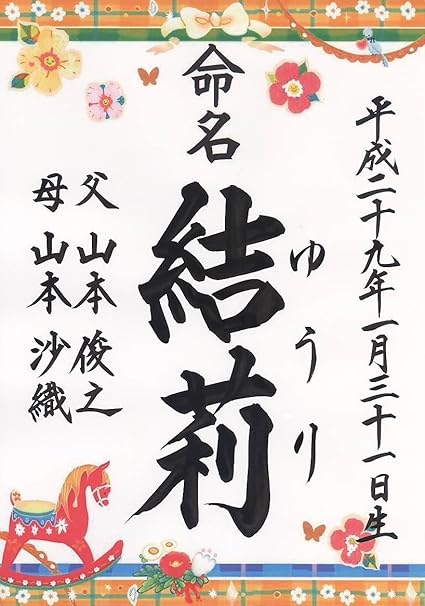 平成二十九年一月三十一日生
命名
ゆうり
結莉
父 山本 俊之
母 山本 沙織